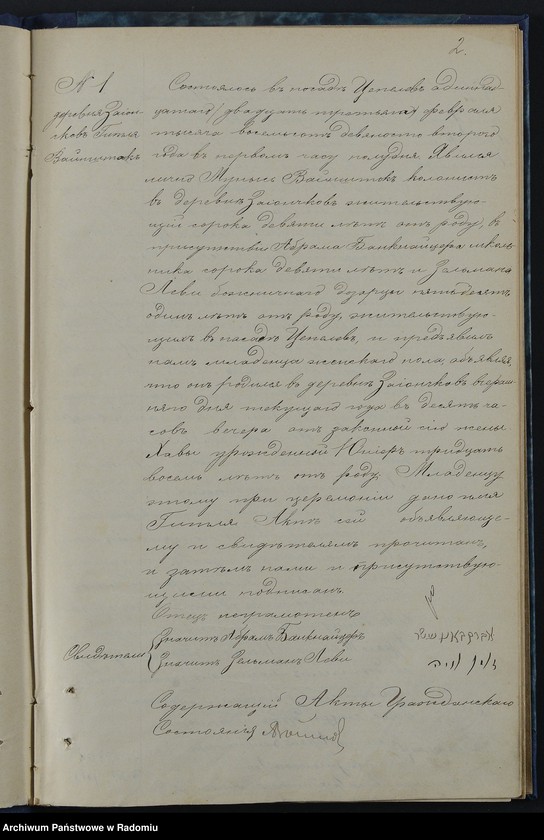 2.
N 1
деревня Заіон-
чковъ Гитля
Вайнштокъ
Состоялось въ посадѣ Цепеловъ одинад-
цатаго/двадцать третьяго февраля
тысяча восемьсотъ девяносто второго
года въ первомъ часу полудня. Явился
лично Вайнштокъ
въ деревнѣ Заіончковъ жительствую-
щій сорока девяти лѣтъ отъ роду, въ
присутствіи Абрама Банкнайцера школь-
ника сорока девяти лѣтъ и Зельмана
Леви божничнаго дозорцы пятьдесятъ
одинъ лѣтъ отъ роду, жительствую-
щихъ въ посадѣ Цепеловъ, и предъявилъ
намъ младенца женскаго пола, объявляя,
что онъ родился въ деревнѣ Заіончковъ вчераш-
няго дня текущаго года въ десять ча-
совъ вечера отъ законной его жены
Хавы урожденной тридцать
восемь лѣтъ отъ роду. Младенцу
этому при церемоніи дано имя
Гитля Актъ сей объявляюще-
му и свидѣтелямъ прочитанъ,
и затѣмъ нами и присутствую-
щими подписанъ.
Отецъ неграмотенъ
Свидѣтели
Значитъ Абрамъ Банкнайцеръ
Значитъ Зельманъ Леви
Содержащій Акты Гражданскаго
Состоянія
Archiwum Państwowe w Radomiu